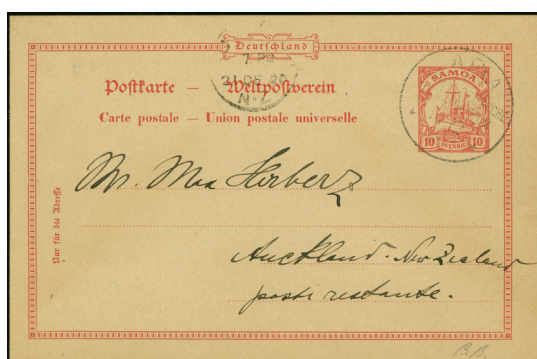 Deutschland
Postkarte — Weltpostverein
Carte postale — Union postale universelle
SAMOA
10 PFENNIG 10
APIA
N.Z.
Nur für die Adresse
Mr. Max Herberz
Auckland. New Zealand
poste restante.